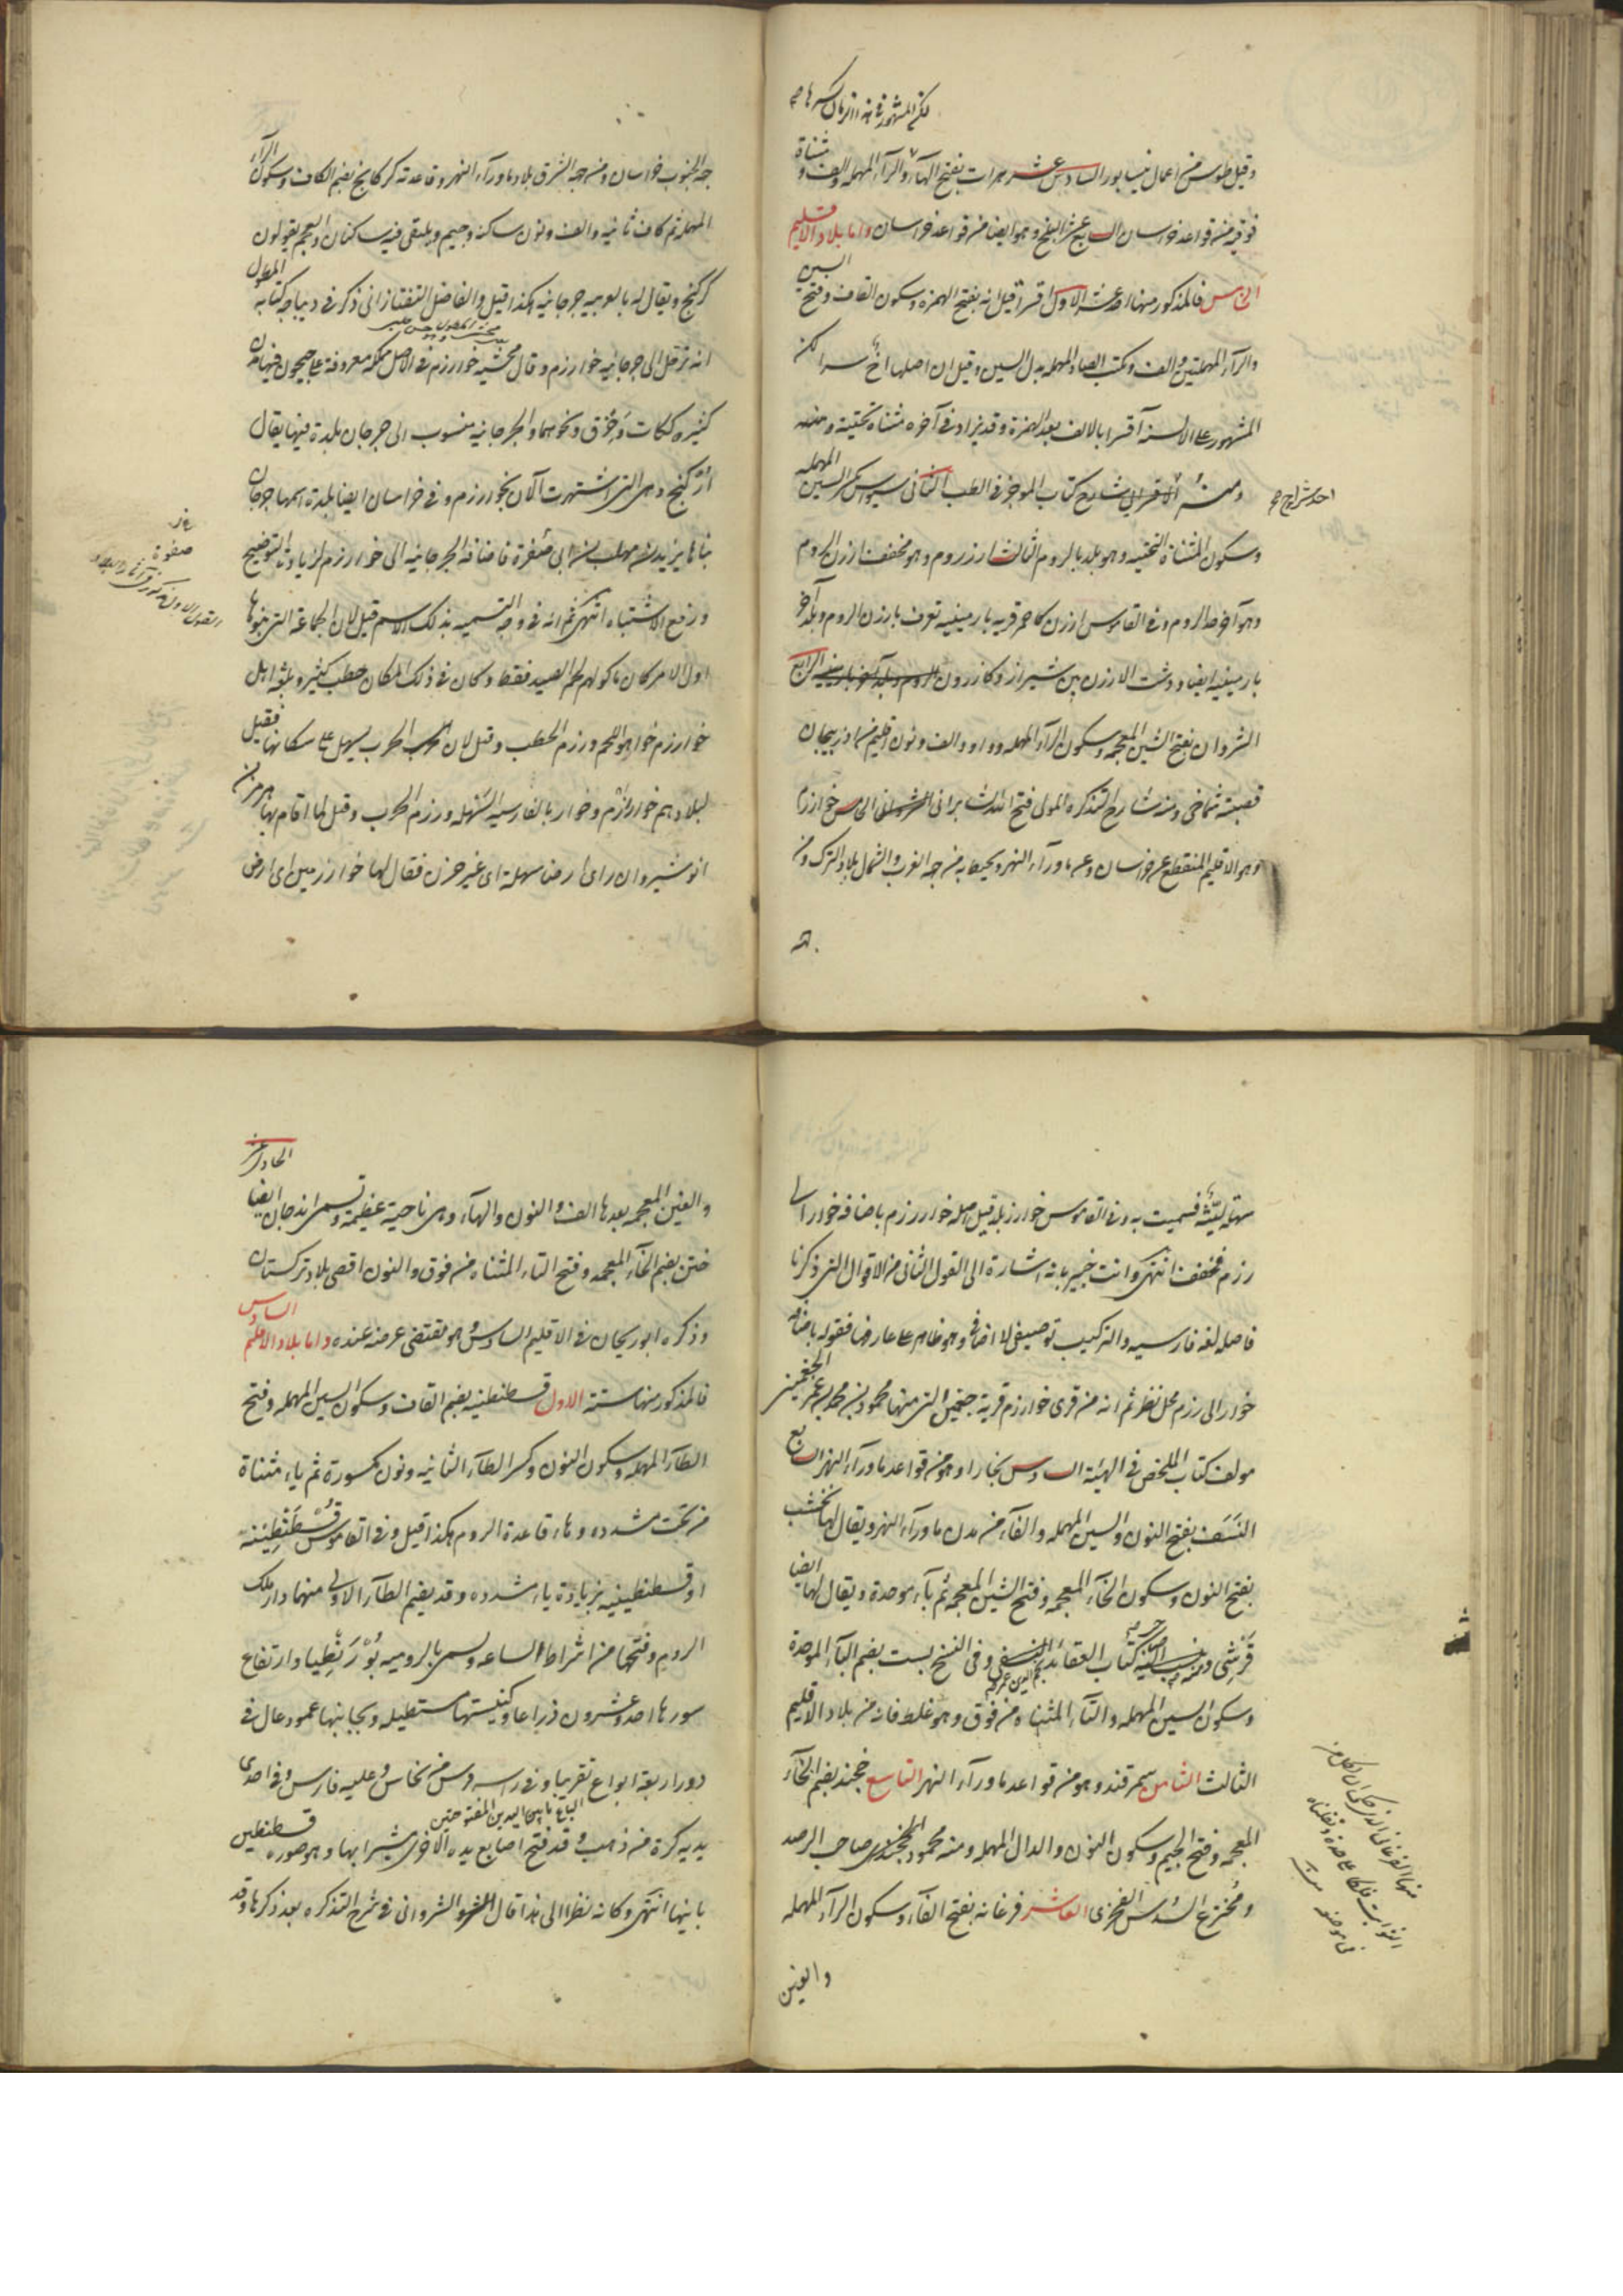 لكن المشهور في هذا الزمان كسرها
وقيل طوس من اعمال نيسابور السادس عشر هرات بفتح الهاء والراء المهمله والف ومثناة
فوقيه من قواعد خراسان السابع عشر البلخ وهو ايضا من قواعد خراسان واما بلاد الاقليم
الخامس فالمذكور منها احد عشر الاول اقسرا قيل انه بفتح الهمزه وسكون القاف وفتح السين
والراء المهملتين والف وتكتب الصاد المهمله بدل السين وقيل ان اصلها اخ سرا لكن
المشهور على الالسنه آقسرا بالالف بعد الهمزة وقد يزاد في آخره مثناة تحتية
ومنه الاقسرايي شارح كتاب الموجز في الطب الثاني سيواس بكسر السين المهمله
وسكون المثناة التحتيه وهو بلد بالروم الثالث ارزروم وهو مخفف ارزن الروم
وهو آخر حد الروم وفي القاموس ارزن كاحمر قريه بارمينيه تعرف بارزن الروم وبلد آخر
بارمينيه ايضا ودشت الارزن بين شيراز وكازرون الرابع
الشروان بفتح الشين المعجمه وسكون الراء المهمله وواو والف ونون اقليم من اذربيجان
قصبته شماخى ومنه شارح التذكره المولى فتح الله الشبراني الخامس خوارزم
وهو الاقليم المنقطع عن خراسان وعن ماوراء النهر ويحيط به من جهة الغرب والشمال بلاد الترك ومن
جهة الجنوب خراسان ومن جهة الشرق بلاد ماوراء النهر وقاعدته كركانج بضم الكاف وسكون الراء
المهمله ثم كاف ثانيه والف ونون ساكنه وجيم ويلتقى فيه ساكنان والعجم يقولون
كركنج ويقال له بالعربيه جرجانيه هكذا قيل والفاضل التفتازاني ذكر في ديباجه كتابه المطول
انه ترحل الى جرجانيه خوارزم وقال محشيه خوارزم في الاصل مملكه معروفة على جيحون فيها مدن
كثيره ككات وخزق ونحوهما والجرجانيه منسوب الى جرجان بلدة فيها يقال
اركنج وهي التي اشتهرت الآن بخوارزم وفي خراسان ايضا بلدة اسمها جرجان
بناها يزيد بن مهلب بن ابي صفرة فاضافة الجرجانيه الى خوارزم لزيادة التوضيح
ورفع الاشتباه انتهى ثم انه في وجه التسميه بذلك الاسم قيل لان الجماعة التي بنوها
اول الامر كان ماكولهم لحم الصيد فقط وكان في ذلك المكان حطب كثير وبلغة اهل
خوارزم خوار هو اللحم ورزم الحطب وقيل لان الحرب يسهل على سكانها فقيل
لبلادهم خواررزم وخوار بالفارسيه السهله ورزم الحرب وقيل لما اقام بها هرمز بن
انوشيروان راى ارضا سهلة اى غير حزن فقال لها خوارزمين اى ارض
سهلة لينة فسميت به وفي القاموس خوارزم بلد قيل اصله خواررزم باضافة خوار الى
رزم فخفف انتهى وانت خبير بانه اشارة الى القول الثاني من الاقوال التي ذكرنا
فاصله لغه فارسيه والتركيب توصيفي لا اضافي وهو ظاهر على عارفها فقوله باضافة
خوار الى رزم محل نظر ثم انه من قرى خوارزم قرية جغمين التي منها محمود بن محمد بن عمر الجغميني
مولف كتاب الملخص في الهيئة السادس بخارا وهو من قواعد ماوراء النهر السابع
النسف بفتح النون والسين المهمله والفاء من مدن ماوراء النهر ويقال لها نخشب
بفتح النون وسكون الخاء المعجمه وفتح الشين المعجمه ثم باء موحدة ويقال لها ايضا
قرشى ومنه صاحب كتاب العقائد النسفي وفي النسخ بست بضم الباء الموحدة
وسكون السين المهمله والتاء المثناة من فوق وهو غلط فانه من بلاد الاقليم
الثالث الثامن سمرقند وهو من قواعد ماوراء النهر التاسع خجند بضم الخاء
المعجمه وفتح الجيم وسكون النون والدال المهمله ومنه محمود الخجندى صاحب الرصد
ومخترع السدس الفخرى العاشر فرغانه بفتح الفاء وسكون الراء المهمله
والغين
والغين المعجمه بعدها الف والنون والهاء وهي ناحية عظيمة وتسمى اندجان ايضا الحادى عشر
ختن بضم الخاء المعجمه وفتح التاء المثناه من فوق والنون اقصى بلاد تركستان
وذكره ابو ريحان في الاقليم السادس وهو مقتضى عرضه عنده واما بلاد الاقليم السادس
فالمذكور منها ستة الاول قسطنطنيه بضم القاف وسكون السين المهمله وفتح
الطاء المهمله وسكون النون وكسر الطاء الثانيه ونون مكسورة ثم ياء مثناة
من تحت مشدده وهاء قاعدة الروم هكذا قيل وفي القاموس قسطنطينه
او قسطنطينيه بزيادة ياء مشدده وقد يضم الطاء الاولى منهما دار ملك
الروم وفتحها من اشراط الساعه وتسمى بالروميه بوزنطيا وارتفاع
سورها احد وعشرون ذراعا وكنيستها مستطيله وبجانبها عمود عال في
دور اربعة ابواع تقريبا وفي راسه فرس من نحاس وعليه فارس وفي احدى
الباع ما بين اليدين المفتوحتين
يديه كرة من ذهب وقد فتح اصابع يده الاخرى مشيرا بها وهو صورة قسطنطين
بانيها انتهى وكانه نظرا الى هذا قال الشروانى في شرح التذكره بعد ذكرها وقد